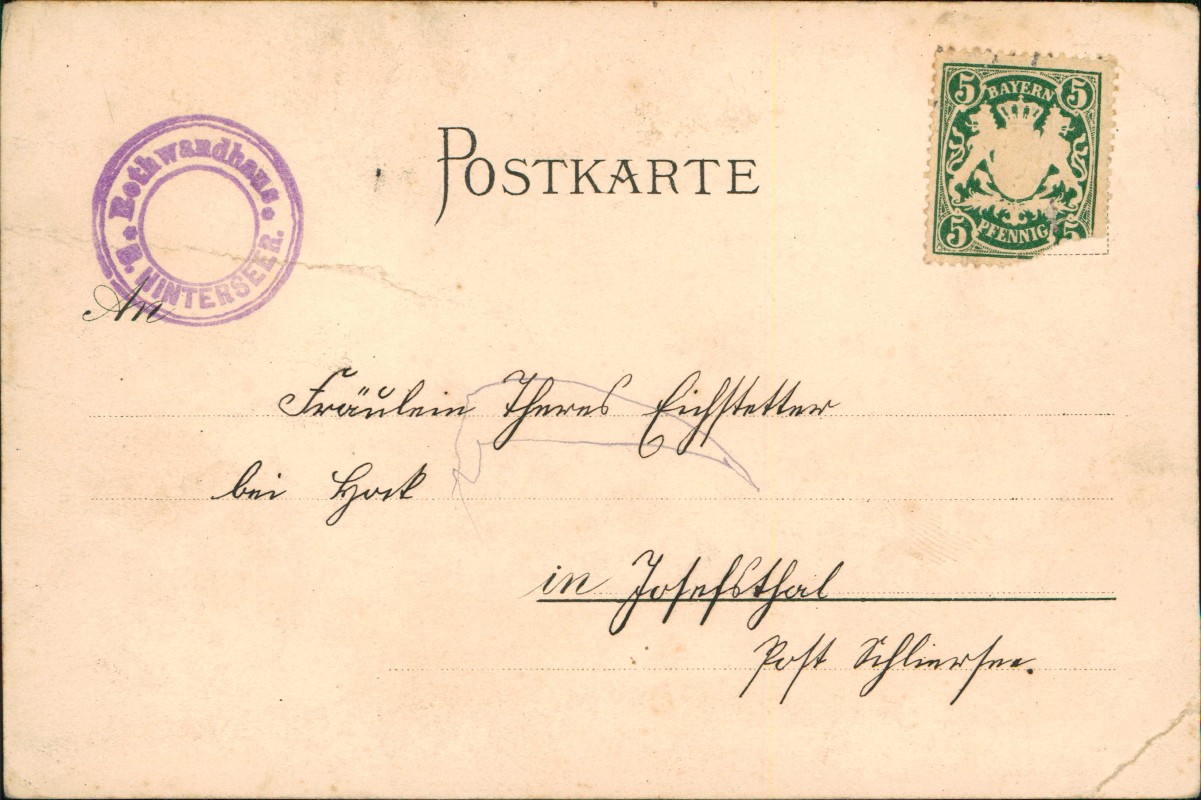 Rothwandhaus.
B. HINTERSEER.
POSTKARTE
5 BAYERN 5
5 PFENNIG 5
An
Fräulein Theres Eichstetter
bei Hock
in Josefsthal
Post Schliersee.